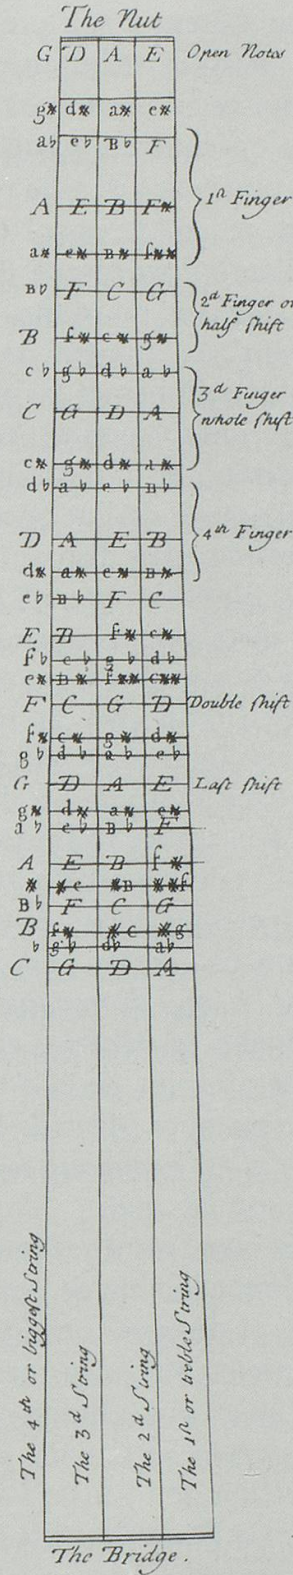 The Nut
G D A E Open Notes
g𝄪 d𝄪 a𝄪 e𝄪
a♭ e♭ B♭ F
A E B F𝄪 1st Finger
a𝄪 e𝄪 B𝄪 f𝄪𝄪
B♭ F C G 2d Finger or
B f𝄪 c𝄪 g𝄪 half shift
c♭ g♭ d♭ a♭
3d Finger
C G D A whole shift
c𝄪 g𝄪 d𝄪 a𝄪
d♭ a♭ e♭ B♭
D A E B 4th Finger
d𝄪 a𝄪 e𝄪 B𝄪
e♭ B♭ F C
E B f𝄪 c𝄪
F♭ c♭ g♭ d♭
e𝄪 B𝄪 f𝄪𝄪 c𝄪𝄪
F C G D Double shift
f𝄪 c𝄪 g𝄪 d𝄪
g♭ d♭ a♭ e♭
G D A E Last shift
g𝄪 d𝄪 a𝄪 e𝄪
a♭ e♭ B♭ F
A E B f𝄪
𝄪 𝄪e 𝄪B 𝄪𝄪f
B♭ F C G
B f𝄪 𝄪c 𝄪g
♭ g♭ d♭ a♭
C G D A
The 4th or biggest String
The 3d String
The 2d String
The 1st or treble String
The Bridge.